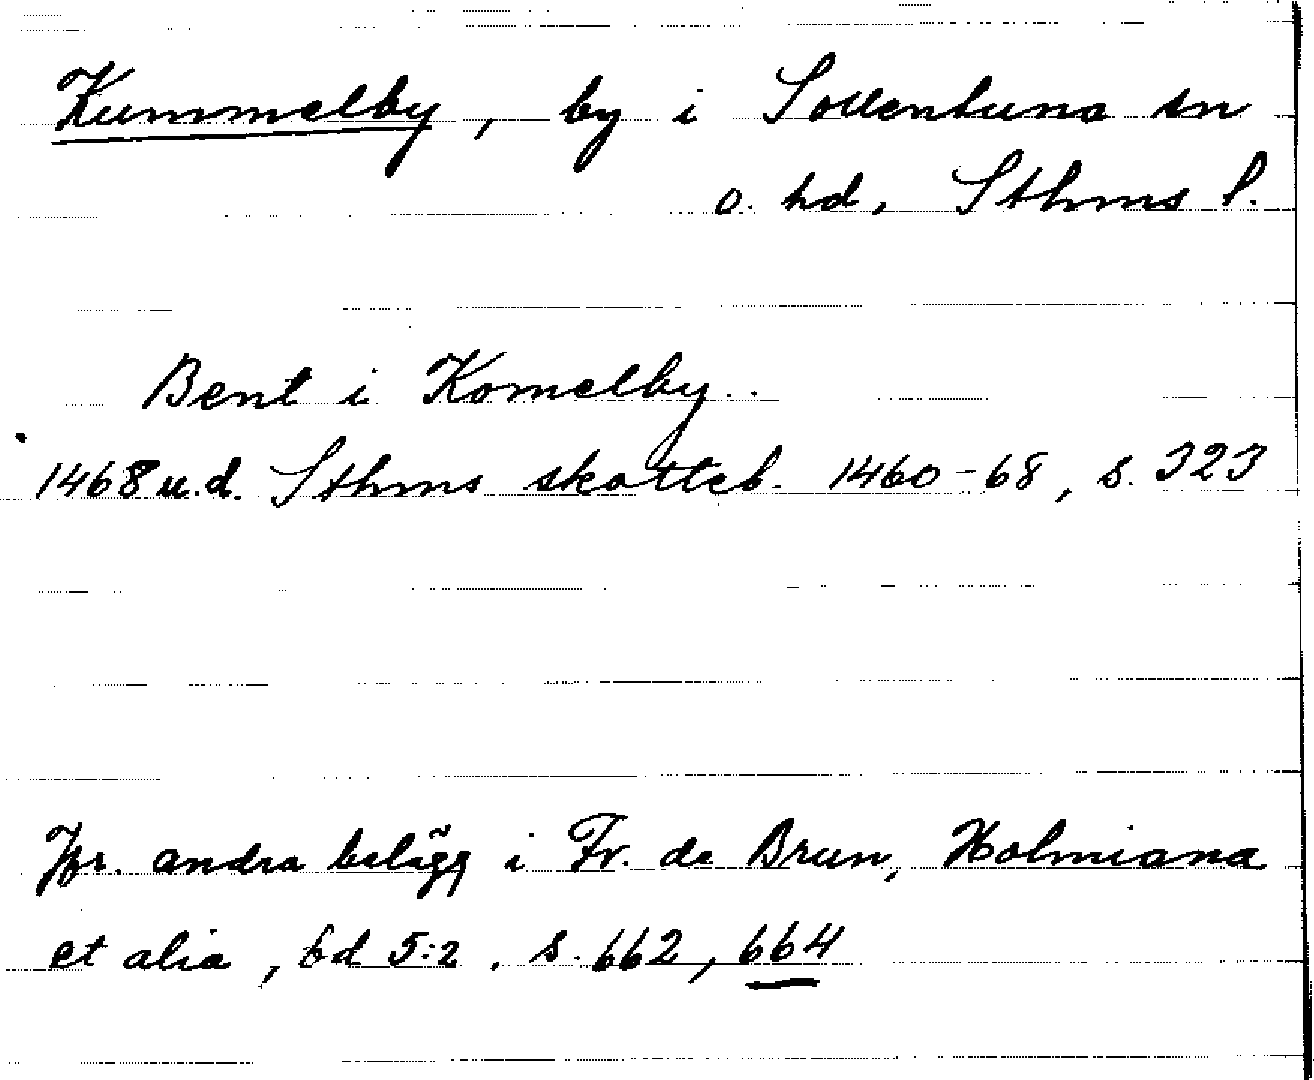 Kummelby, by i Sollentuna sn
o. hd, Sthms l.
Bent i Komelby..
1468 u.d. Sthms skotteb. 1460-68, s. 323
Jfr. andra belägg i Fr. de Brun, Holmiana
et alia, bd 5:2, s. 662, 664